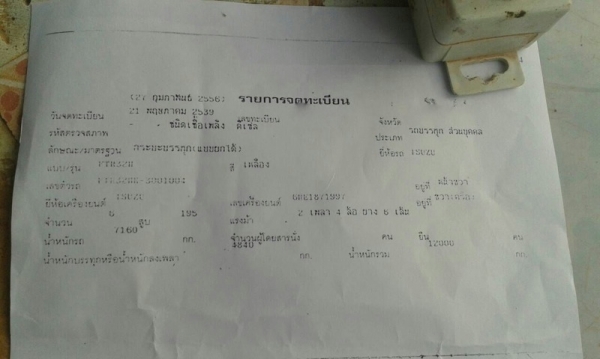 (27 กุมภาพันธ์ 2556) รายการจดทะเบียน
วันจดทะเบียน 21 พฤษภาคม 2539 เลขทะเบียน จังหวัด
รหัสตรวจสภาพ - - ชนิดเชื้อเพลิง ดีเซล ประเภท รถบรรทุก ส่วนบุคคล
ลักษณะ/มาตรฐาน กระบะบรรทุก(แบบยกได้) ยี่ห้อรถ ISUZU
แบบ/รุ่น สี เหลือง
เลขตัวรถ อยู่ที่
ยี่ห้อเครื่องยนต์ ISUZU เลขเครื่องยนต์ อยู่ที่
จำนวน 6 สูบ 195 แรงม้า 2 เพลา 4 ล้อ ยาง 6 เส้น
น้ำหนักรถ 7160 กก. จำนวนผู้โดยสารนั่ง คน ยืน คน
น้ำหนักบรรทุกหรือน้ำหนักลงเพลา 4840 กก. น้ำหนักรวม 12000 กก.